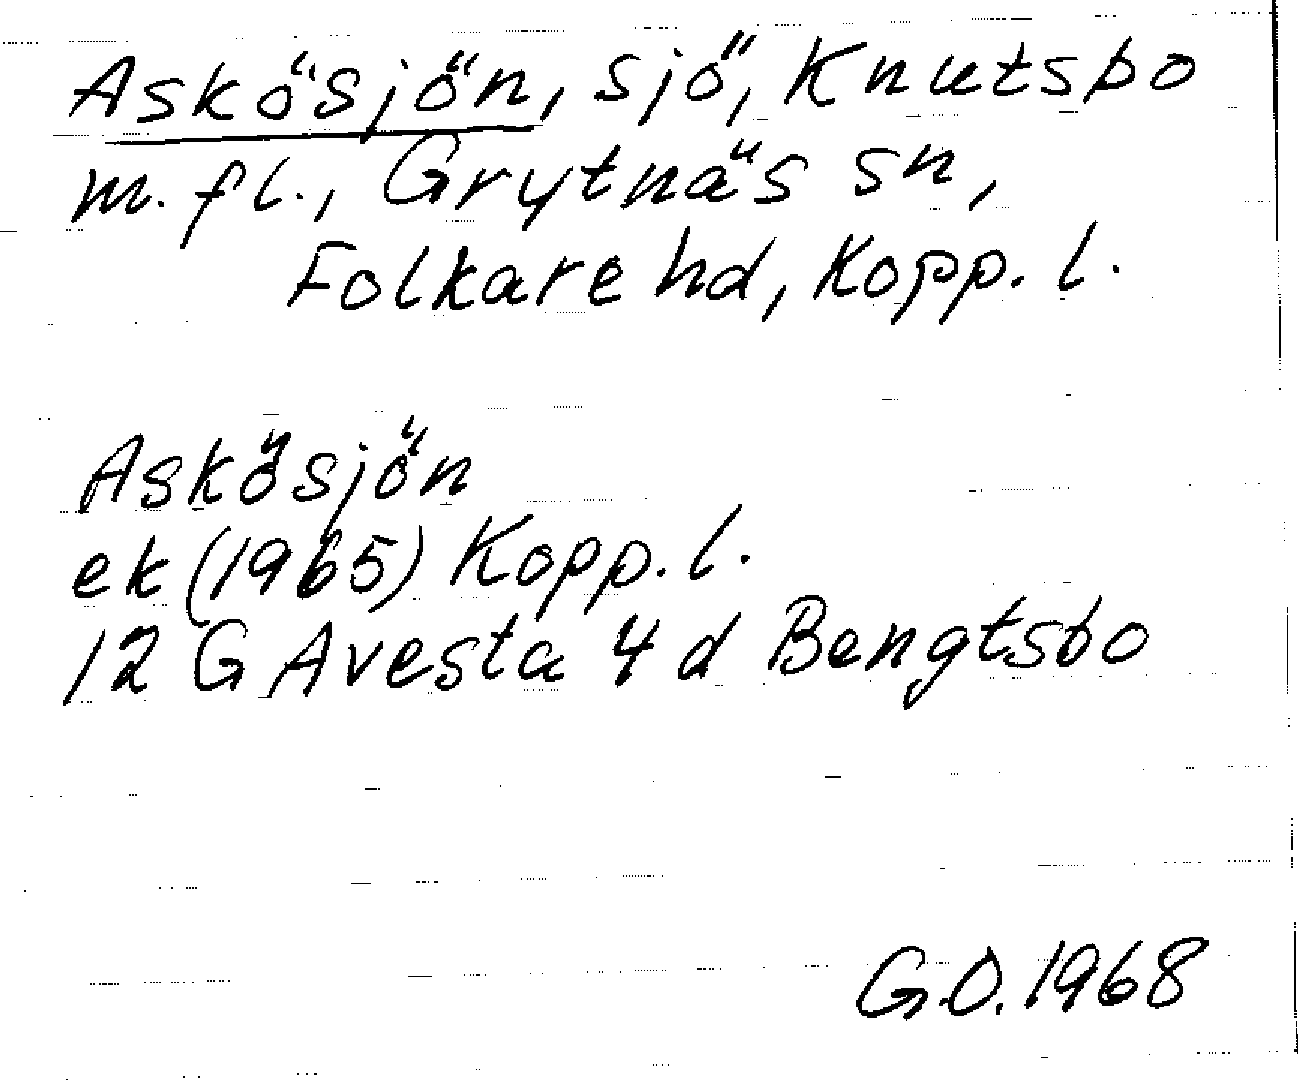 Askösjön, sjö, Knutsbo
m. fl., Grytnäs sn,
Folkare hd, Kopp. l.
Askösjön
ek (1965) Kopp. l.
12 G Avesta 4 d Bengtsbo
G.O. 1968